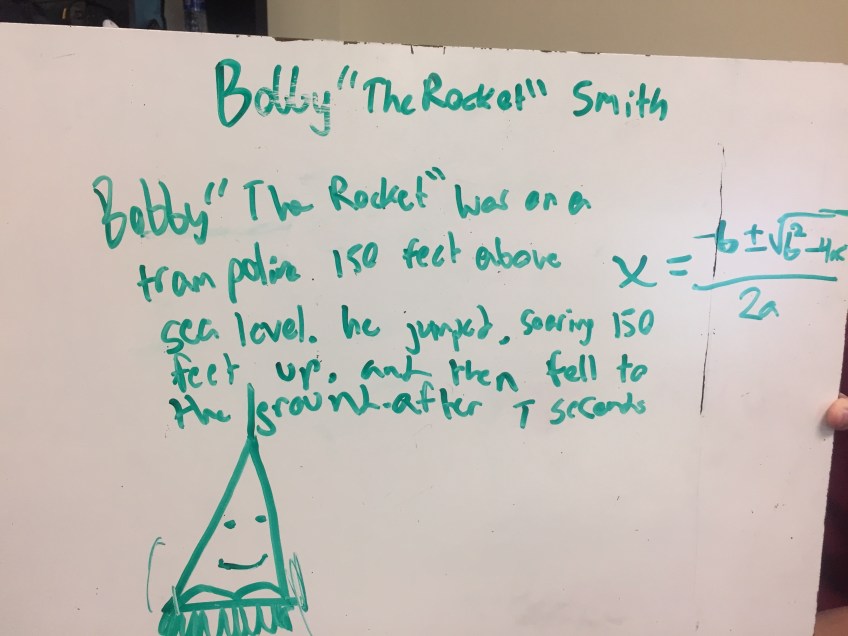 Bobby "The Rocket" Smith
Bobby "The Rocket" was on a
trampoline 150 feet above
sea level. he jumped, soaring 150
feet up, and then fell to
the ground after T seconds
x = -b ± √b² - 4ac / 2a